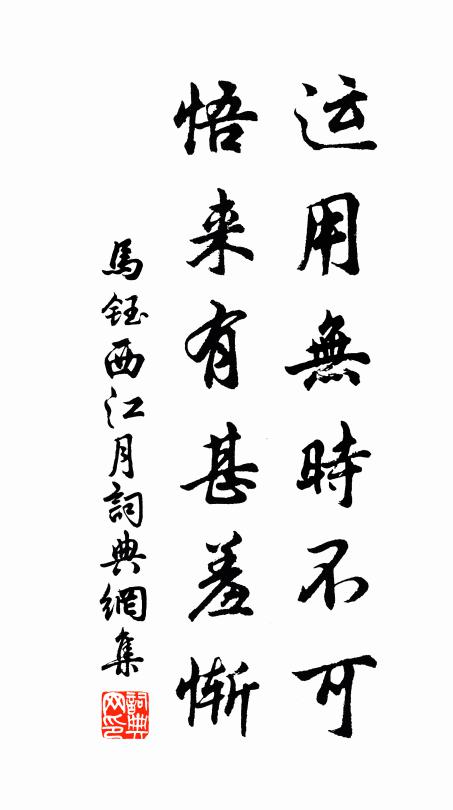 运用無時不可
悟来有甚羞惭
馬鈺西江月詞典網集
詞典网印